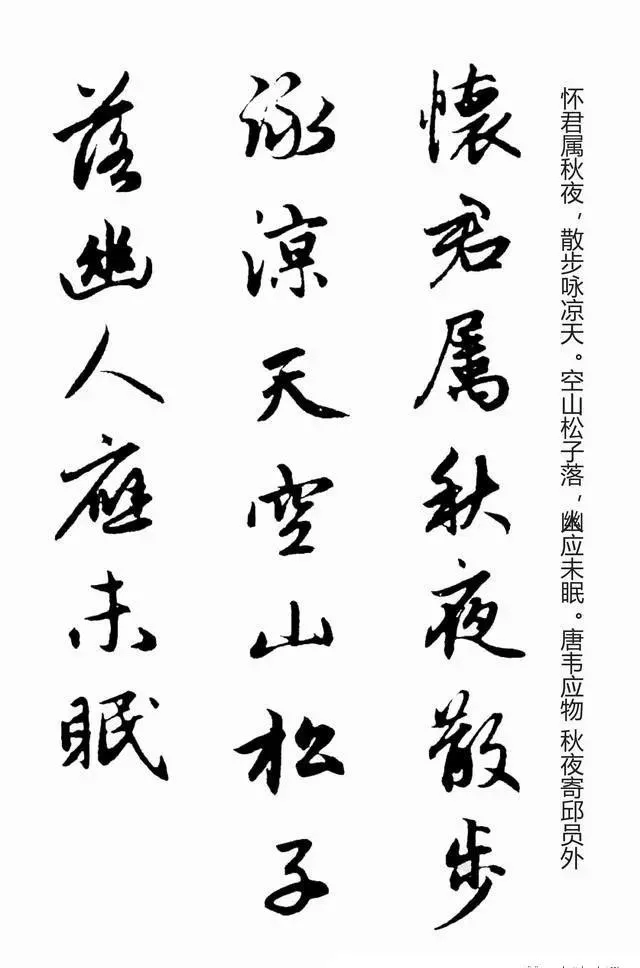 怀君属秋夜，散步咏凉天。空山松子落，幽应未眠。唐韦应物 秋夜寄邱员外
懷君属秋夜散步
詠凉天空山松子
落幽人應未眠